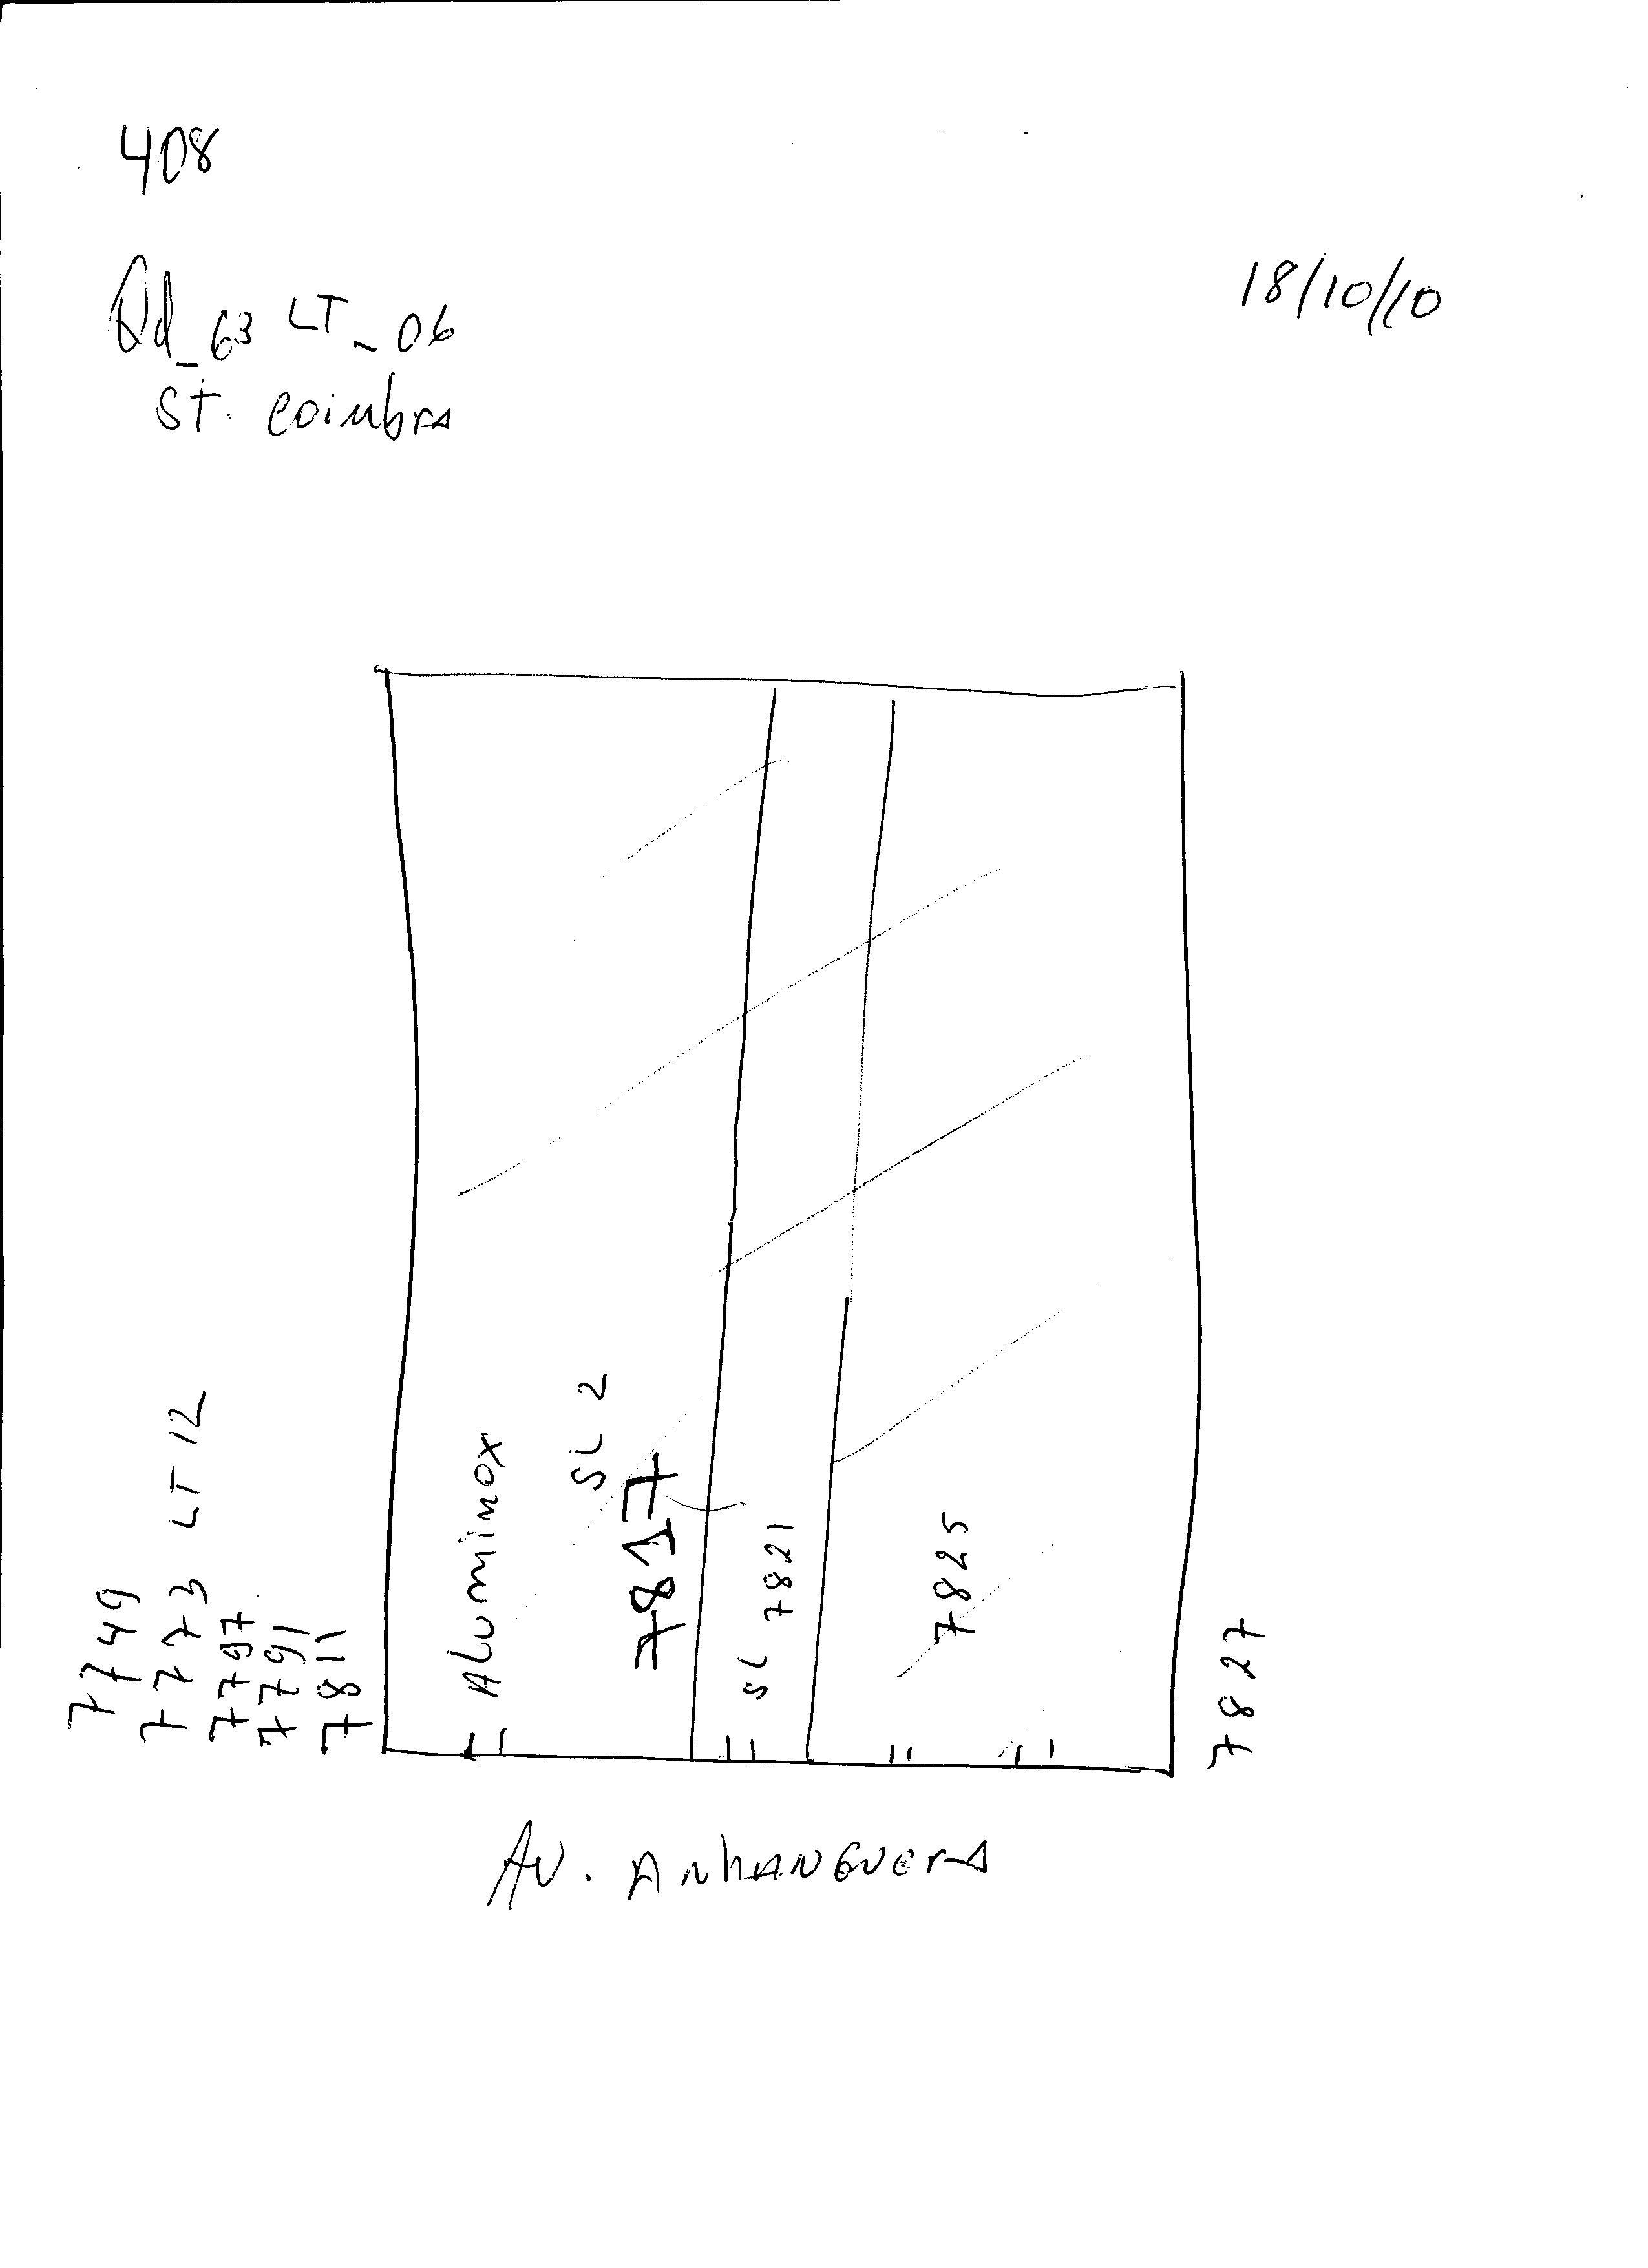 408
18/10/10
Qd_63 LT_06
ST. Coimbra
7749
7773 LT 12
7797
7791
7811
Aluminox
SL 2
7817
SL 7821
7825
7827
AV. ANHANGUERA